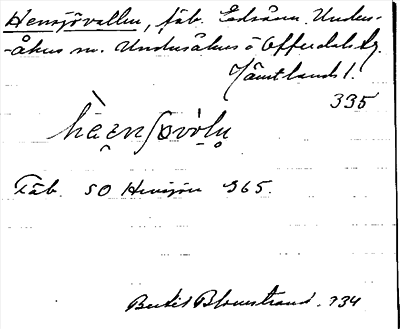 Hensjövallen, fäb. Edsåsen. Unders-
-åkers sn. Undersåkers o Offerdals tg.
Jämtlands l.
335
Fäb. SO Hensjön 365.
Bertil Blomstrand. 734